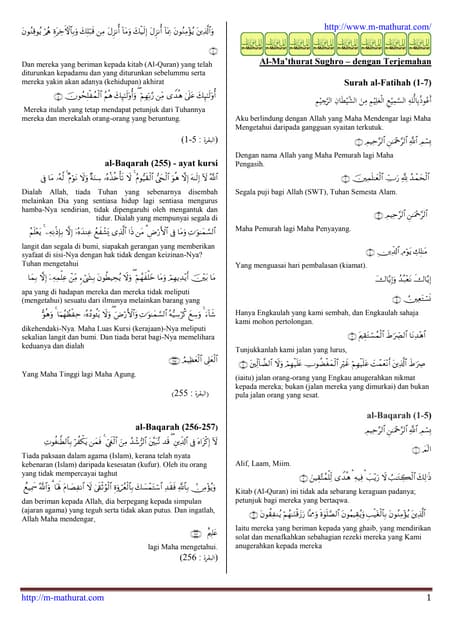 http://www.m-mathurat.com/
Al-Ma'thurat Sughro – dengan Terjemahan
Surah al-Fatihah (1-7)
أَعُوذُ بِاللَّهِ السَّمِيعِ الْعَلِيمِ مِنَ الشَّيْطَانِ الرَّجِيْمِ
Aku berlindung dengan Allah Yang Maha Mendengar lagi Maha
Mengetahui daripada gangguan syaitan terkutuk.
بِسْمِ ٱللَّهِ ٱلرَّحْمَـٰنِ ٱلرَّحِيمِ
Dengan nama Allah yang Maha Pemurah lagi Maha
Pengasih.
ٱلْحَمْدُ لِلَّهِ رَبِّ ٱلْعَـٰلَمِينَ
Segala puji bagi Allah (SWT), Tuhan Semesta Alam.
ٱلرَّحْمَـٰنِ ٱلرَّحِيمِ
Maha Pemurah lagi Maha Penyayang.
مَـٰلِكِ يَوْمِ ٱلدِّينِ
Yang menguasai hari pembalasan (kiamat).
إِيَّاكَ نَعْبُدُ وَإِيَّاكَ
نَسْتَعِينُ
Hanya Engkaulah yang kami sembah, dan Engkaulah sahaja
kami mohon pertolongan.
ٱهْدِنَا ٱلصِّرَٰطَ ٱلْمُسْتَقِيمَ
Tunjukkanlah kami jalan yang lurus,
صِرَٰطَ ٱلَّذِينَ أَنْعَمْتَ عَلَيْهِمْ غَيْرِ ٱلْمَغْضُوبِ عَلَيْهِمْ وَلَا ٱلضَّآلِّينَ
(iaitu) jalan orang-orang yang Engkau anugerahkan nikmat
kepada mereka; bukan (jalan mereka yang dimurkai) dan bukan
pula jalan orang yang sesat.
al-Baqarah (1-5)
بِسْمِ ٱللَّهِ ٱلرَّحْمَـٰنِ ٱلرَّحِيمِ
الٓمٓ
Alif, Laam, Miim.
ذَٰلِكَ ٱلْكِتَـٰبُ لَا رَيْبَ ۛ فِيهِ ۛ هُدًى لِّلْمُتَّقِينَ
Kitab (Al-Quran) ini tidak ada sebarang keraguan padanya;
petunjuk bagi mereka yang bertaqwa.
ٱلَّذِينَ يُؤْمِنُونَ بِٱلْغَيْبِ وَيُقِيمُونَ ٱلصَّلَوٰةَ وَمِمَّا رَزَقْنَـٰهُمْ يُنفِقُونَ
Iaitu mereka yang beriman kepada yang ghaib, yang mendirikan
solat dan menafkahkan sebahagian rezeki mereka yang Kami
anugerahkan kepada mereka
وَٱلَّذِينَ يُؤْمِنُونَ بِمَآ أُنزِلَ إِلَيْكَ وَمَآ أُنزِلَ مِن قَبْلِكَ وَبِٱلْـَٔاخِرَةِ هُمْ يُوقِنُونَ
Dan mereka yang beriman kepada kitab (Al-Quran) yang telah
diturunkan kepadamu dan yang diturunkan sebelummu serta
mereka yakin akan adanya (kehidupan) akhirat
أُو۟لَـٰٓئِكَ عَلَىٰ هُدًى مِّن رَّبِّهِمْ ۖ وَأُو۟لَـٰٓئِكَ هُمُ ٱلْمُفْلِحُونَ
Mereka itulah yang tetap mendapat petunjuk dari Tuhannya
mereka dan merekalah orang-orang yang beruntung.
(البقرة : 1-5)
al-Baqarah (255) - ayat kursi
ٱللَّهُ لَآ إِلَـٰهَ إِلَّا هُوَ ٱلْحَىُّ ٱلْقَيُّومُ ۚ لَا تَأْخُذُهُۥ سِنَةٌ وَلَا نَوْمٌ ۚ لَّهُۥ مَا فِى
Dialah Allah, tiada Tuhan yang sebenarnya disembah
melainkan Dia yang sentiasa hidup lagi sentiasa mengurus
hamba-Nya sendirian, tidak dipengaruhi oleh mengantuk dan
tidur. Dialah yang mempunyai segala di
ٱلسَّمَـٰوَٰتِ وَمَا فِى ٱلْأَرْضِ ۗ مَن ذَا ٱلَّذِى يَشْفَعُ عِندَهُۥٓ إِلَّا بِإِذْنِهِۦ ۚ يَعْلَمُ
langit dan segala di bumi, siapakah gerangan yang memberikan
syafaat di sisi-Nya dengan hak tidak dengan keizinan-Nya?
Tuhan mengetahui
مَا بَيْنَ أَيْدِيهِمْ وَمَا خَلْفَهُمْ ۖ وَلَا يُحِيطُونَ بِشَىْءٍ مِّنْ عِلْمِهِۦٓ إِلَّا بِمَا
apa yang di hadapan mereka dan mereka tidak meliputi
(mengetahui) sesuatu dari ilmunya melainkan barang yang
شَآءَ ۚ وَسِعَ كُرْسِيُّهُ ٱلسَّمَـٰوَٰتِ وَٱلْأَرْضَ ۖ وَلَا يَـُٔودُهُۥ حِفْظُهُمَا ۚ وَهُوَ
dikehendaki-Nya. Maha Luas Kursi (kerajaan)-Nya meliputi
sekalian langit dan bumi. Dan tiada berat bagi-Nya memelihara
keduanya dan dialah
ٱلْعَلِىُّ ٱلْعَظِيمُ
Yang Maha Tinggi lagi Maha Agung.
(البقرة : 255)
al-Baqarah (256-257)
لَآ إِكْرَاهَ فِى ٱلدِّينِ ۖ قَد تَّبَيَّنَ ٱلرُّشْدُ مِنَ ٱلْغَىِّ ۚ فَمَن يَكْفُرْ بِٱلطَّـٰغُوتِ
Tiada paksaan dalam agama (Islam), kerana telah nyata
kebenaran (Islam) daripada kesesatan (kufur). Oleh itu orang
yang tidak mempercayai taghut
وَيُؤْمِنۢ بِٱللَّهِ فَقَدِ ٱسْتَمْسَكَ بِٱلْعُرْوَةِ ٱلْوُثْقَىٰ لَا ٱنفِصَامَ لَهَا ۗ وَٱللَّهُ سَمِيعٌ
dan beriman kepada Allah, dia berpegang kepada simpulan
(ajaran agama) yang teguh serta tidak akan putus. Dan ingatlah,
Allah Maha mendengar,
عَلِيمٌ
lagi Maha mengetahui.
(البقرة : 256)
http://m-mathurat.com
1